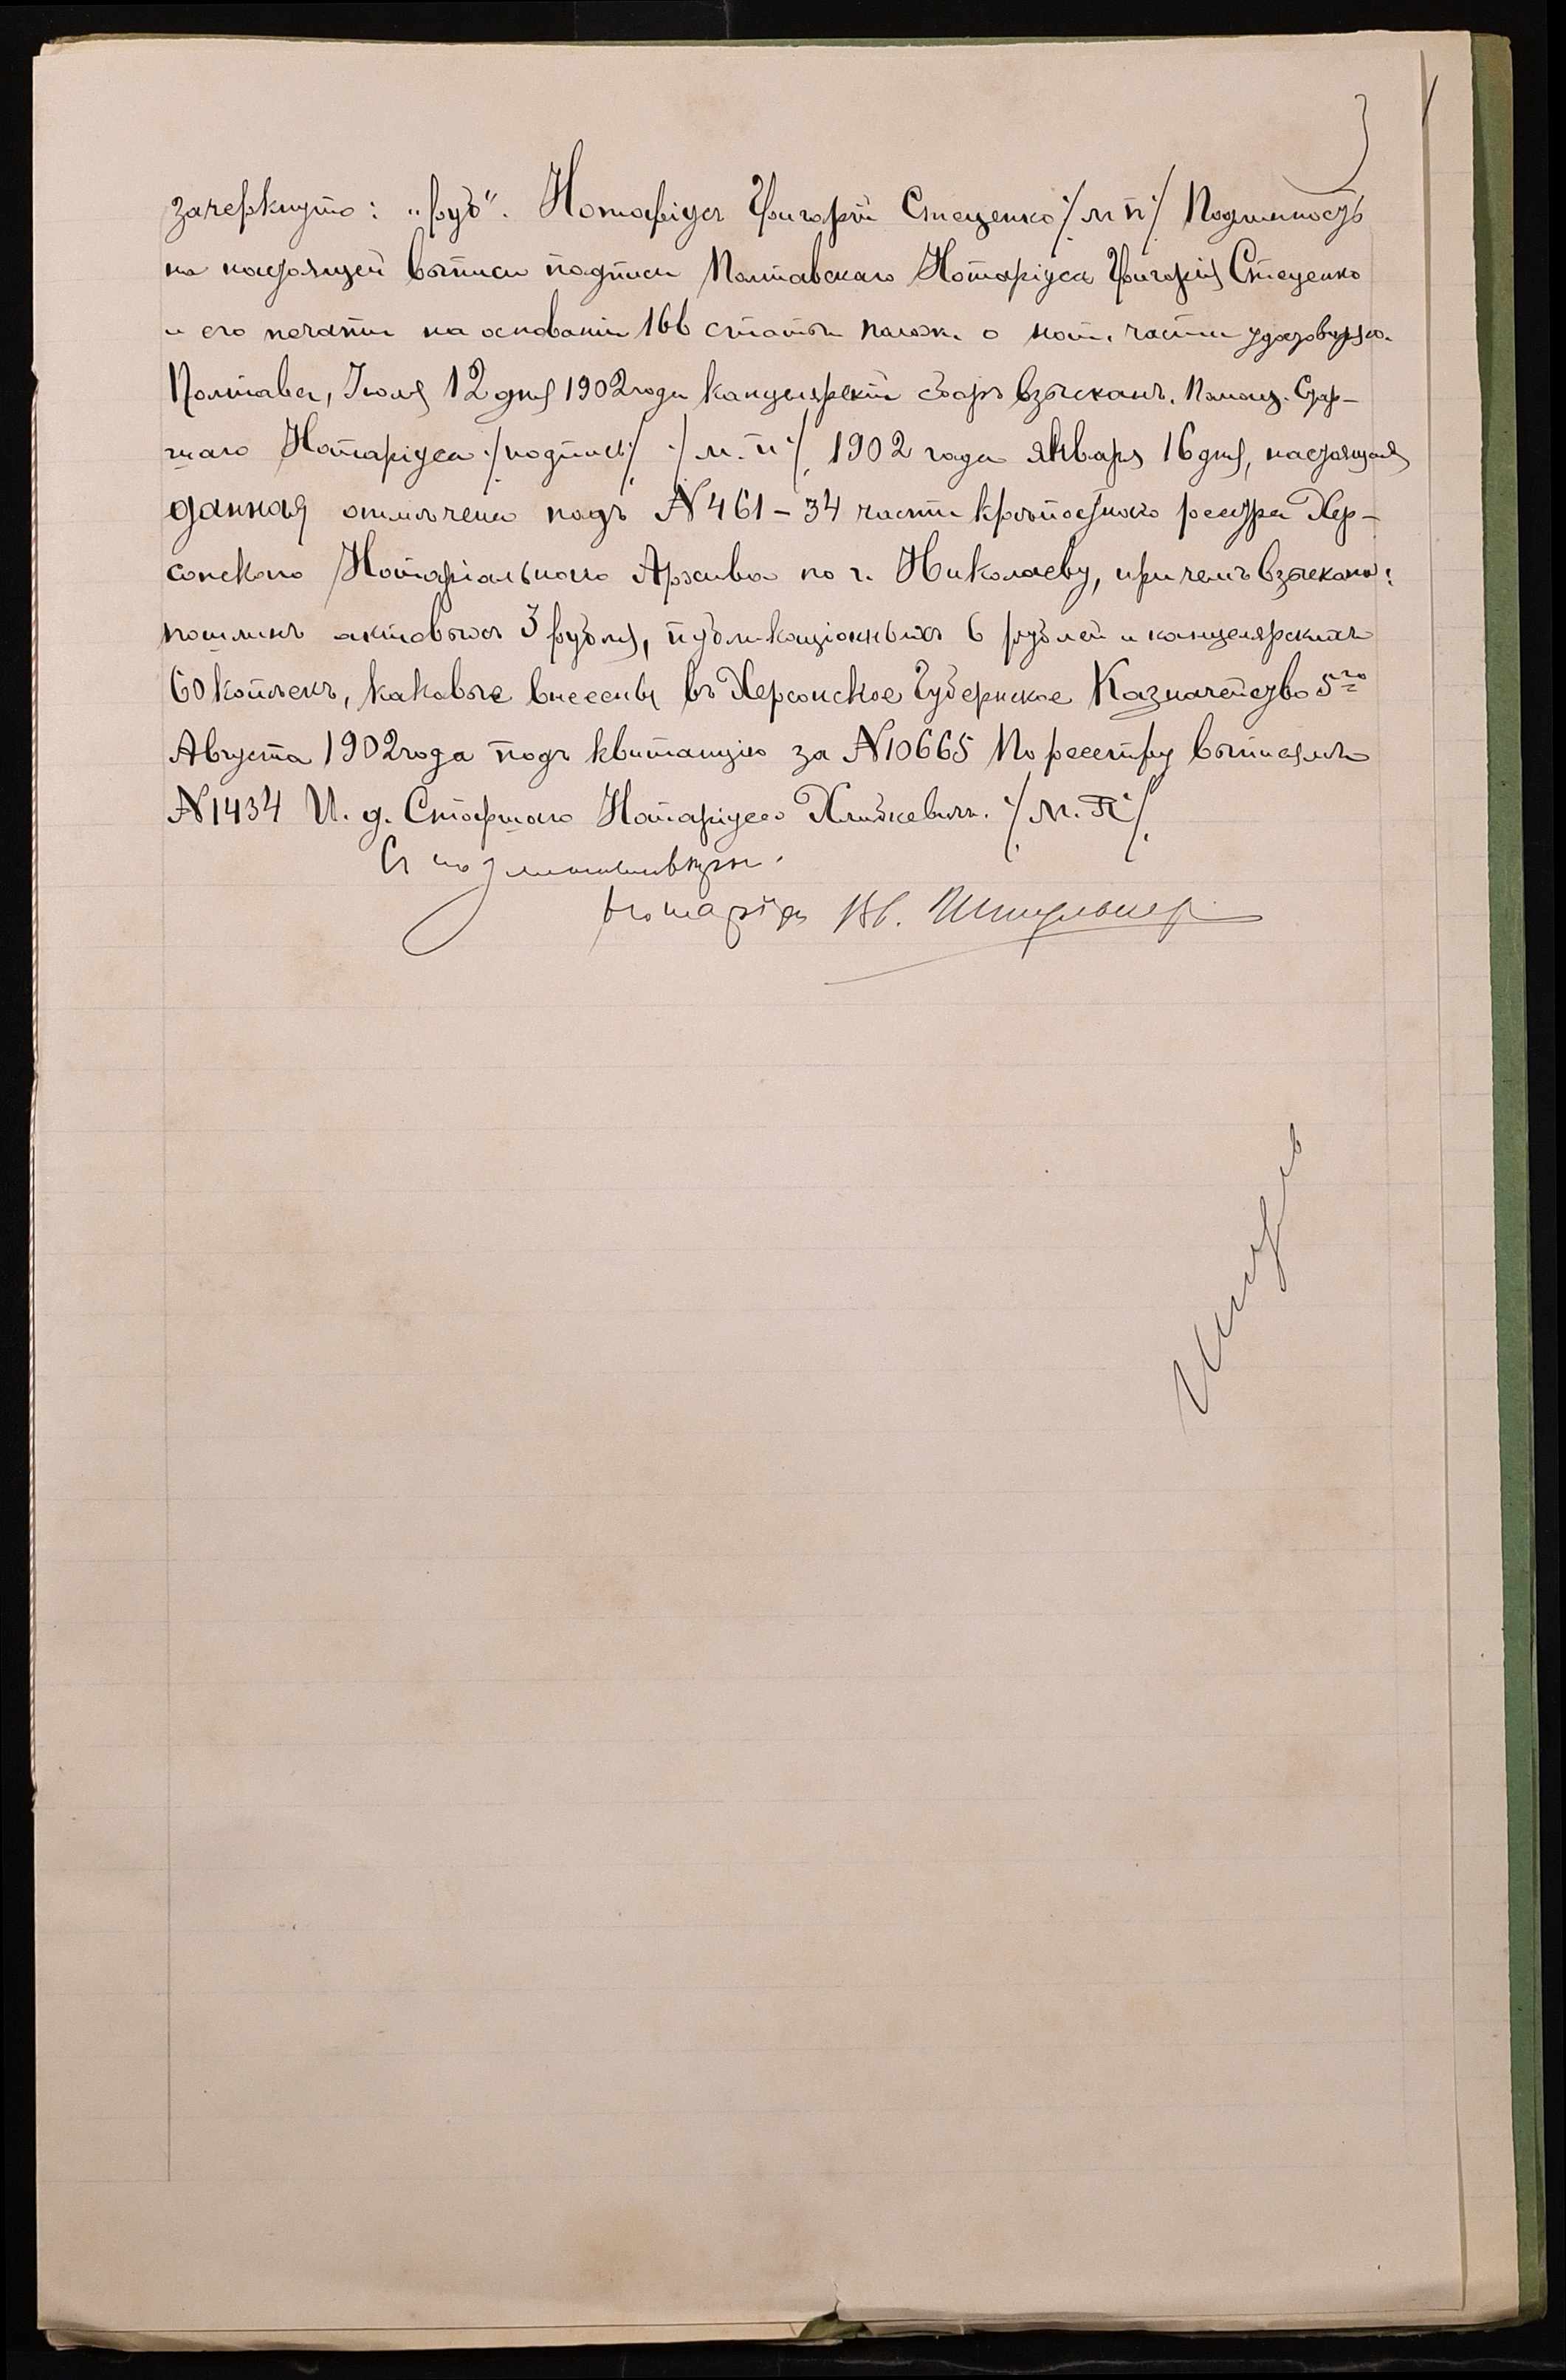 зачеркнуто: „руб“. Нотаріусъ Григорій Стеценко /м п/ Подлинность
на настоящей выписи подписи Полтавскаго Нотаріуса Григорія Стеценко
и его печати на основаніи 166 статьи полож. о нот. части удостовѣряю.
Полтава, Іюля 12 дня 1902 года канцелярскій сборъ взысканъ. Помощ. Стар-
шаго Нотаріуса /подпись/ /м. п/ 1902 года января 16 дня, настоящая
данная отмѣчена подъ N 461 – 34 части крѣпостного реестра Хер-
сонскаго Нотаріальнаго Архива по г. Николаеву, при чемъ взыскано:
пошлинъ актовыхъ 3 рубля, публикаціонныхъ 6 рублей и канцелярскихъ
60 копѣекъ, каковые внесены въ Херсонское Губернское Казначейство 5го
Августа 1902 года подъ квитанцію за N 10665 По реестру выписямъ
N 1434 И. д. Старшаго Нотаріуса /М. П/
Съ подлиннымъ вѣрно:
Нотаріусъ